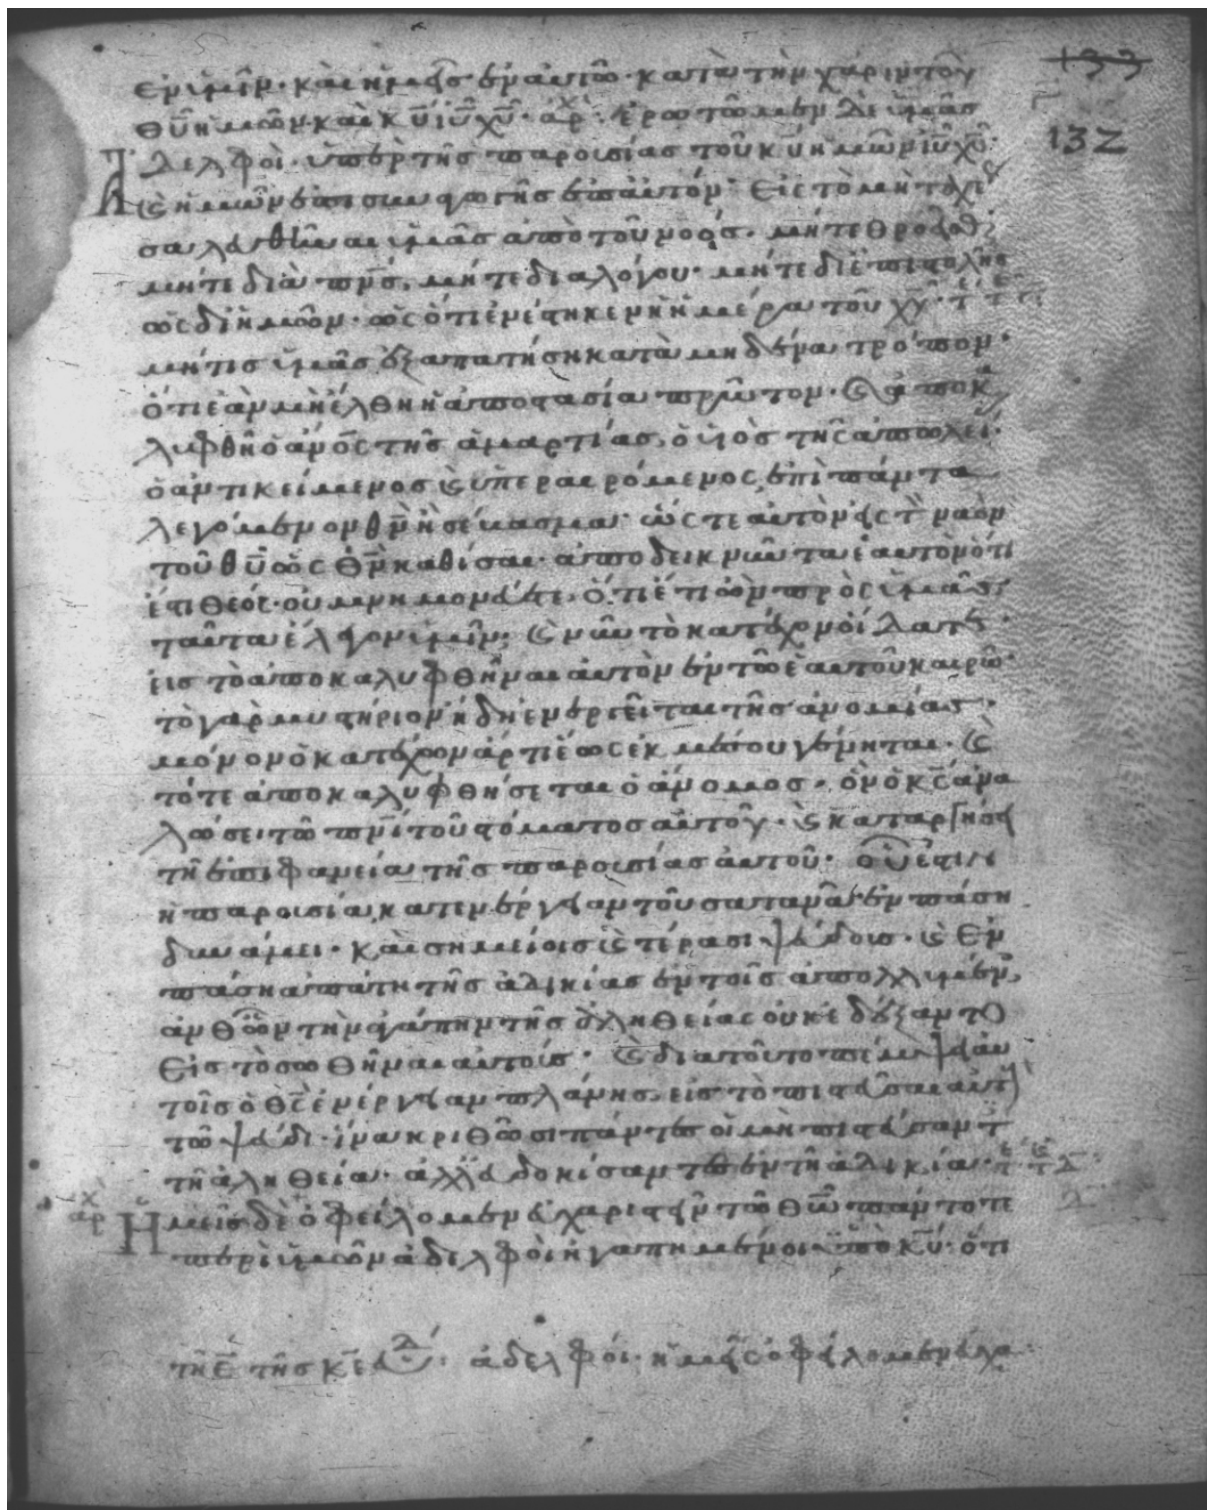 133
132
ἐν ὑμῖν· καὶ ὑμεῖς ἐν αὐτῶ· κατὰ τὴν χάριν τοῦ
θ̅υ̅ ἡμῶν καὶ κ̅υ̅ ἰ̅υ̅ χ̅υ̅· ἀρχ: ἐρωτῶμεν δὲ ὑμᾶς
ἀδελφοὶ· ὑπὲρ τῆς παρουσίας τοῦ κ̅υ̅ ἡμῶν ἰ̅υ̅ χ̅υ̅·
ϗ ἡμῶν ἐπισυναγωγῆς ἐπ' αὐτόν· εἰς τὸ μὴ ταχέ
σαλευθῆναι ὑμᾶς ἀπὸ τοῦ νοός· μήτε θροεῖσθ
μήτε διὰ π̅ν̅ς̅· μήτε διὰ λόγου· μήτε δι' ἐπιστολῆς
ὡς δι' ἡμῶν· ὡς ὅτι ἐνέστηκεν ἡ ἡμέρα τοῦ χ̅υ̅·
μήτις ὑμᾶς ἐξαπατήση κατὰ μηδένα τρόπον·
ὅτι ἐὰν μὴ ἔλθη ἡ ἀποστασία πρῶτον· ϗ ἀποκα
λυφθῆ ὁ ἀν̅ο̅ς̅ τῆς ἁμαρτίας· ὁ υἱὸς τῆς ἀπωλεί·
ὁ ἀντικείμενος ϗ ὑπεραιρόμενος ἐπὶ πάντα
λεγόμενον θ̅ν̅ ἢ σέβασμα· ὥστε αὐτὸν εἰς τ ναὸν
τοῦ θ̅υ̅ ὡς θ̅ν̅ καθίσαι· ἀποδεικνῦντα ἑαυτὸν ὅτι
ἔστι θεός· οὐ μνημονεύετε· ὅτι ἔτι ὢν πρὸς ὑμᾶς
ταῦτα ἔλεγον ὑμῖν; ϗ νῦν τὸ κατέχον οἴδατε·
εἰς τὸ ἀποκαλυφθῆναι αὐτὸν ἐν τῶ ἑαυτοῦ καιρῶ·
τὸ γὰρ μυστήριον ἤδη ἐνεργεῖται τῆς ἀνομίας·
μόνον ὁ κατέχων ἄρτι ἕως ἐκ μέσου γένηται· ϗ
τότε ἀποκαλυφθήσεται ὁ ἄνομος· ὃν ὁ κ̅ς̅ ἀνα
λώσει τῶ π̅ν̅ι̅ τοῦ στόματος αὐτοῦ· ϗ καταργήσει
τῆ ἐπιφανεία τῆς παρουσίας αὐτοῦ· οὗ ἐστιν
ἡ παρουσία κατ' ἐνέργειαν τοῦ σατανᾶ ἐν πάση
δυνάμει· καὶ σημείοις ϗ τέρασι ψεύδους· ϗ ἐν
πάση ἀπάτη τῆς ἀδικίας ἐν τοῖς ἀπολλυμένοις
ἀνθ' ὧν τὴν ἀγάπην τῆς ἀληθείας οὐκ ἐδέξαντο
εἰς τὸ σωθῆναι αὐτούς· ϗ διατοῦτο πέμψει αὐ
τοῖς ὁ θ̅ς̅ ἐνέργειαν πλάνης· εἰς τὸ πιστεῦσαι αὐτ
τῶ ψεύδει· ἵνα κριθῶσι πάντες οἱ μὴ πιστεύσαντ
τῆ ἀληθεία· ἀλλ' εὐδοκήσαντες ἐν τῆ ἀδικία·
ἀρχ ἡμεῖς δὲ ὀφείλομεν εὐχαριστεῖν τῶ θ̅ω̅ πάντοτε
περὶ ὑμῶν ἀδελφοὶ ἠγαπημένοι ὑπὸ κ̅υ̅· ὅτι
ἀδελφοί· ἡμεῖς ὀφείλομεν εὐχα